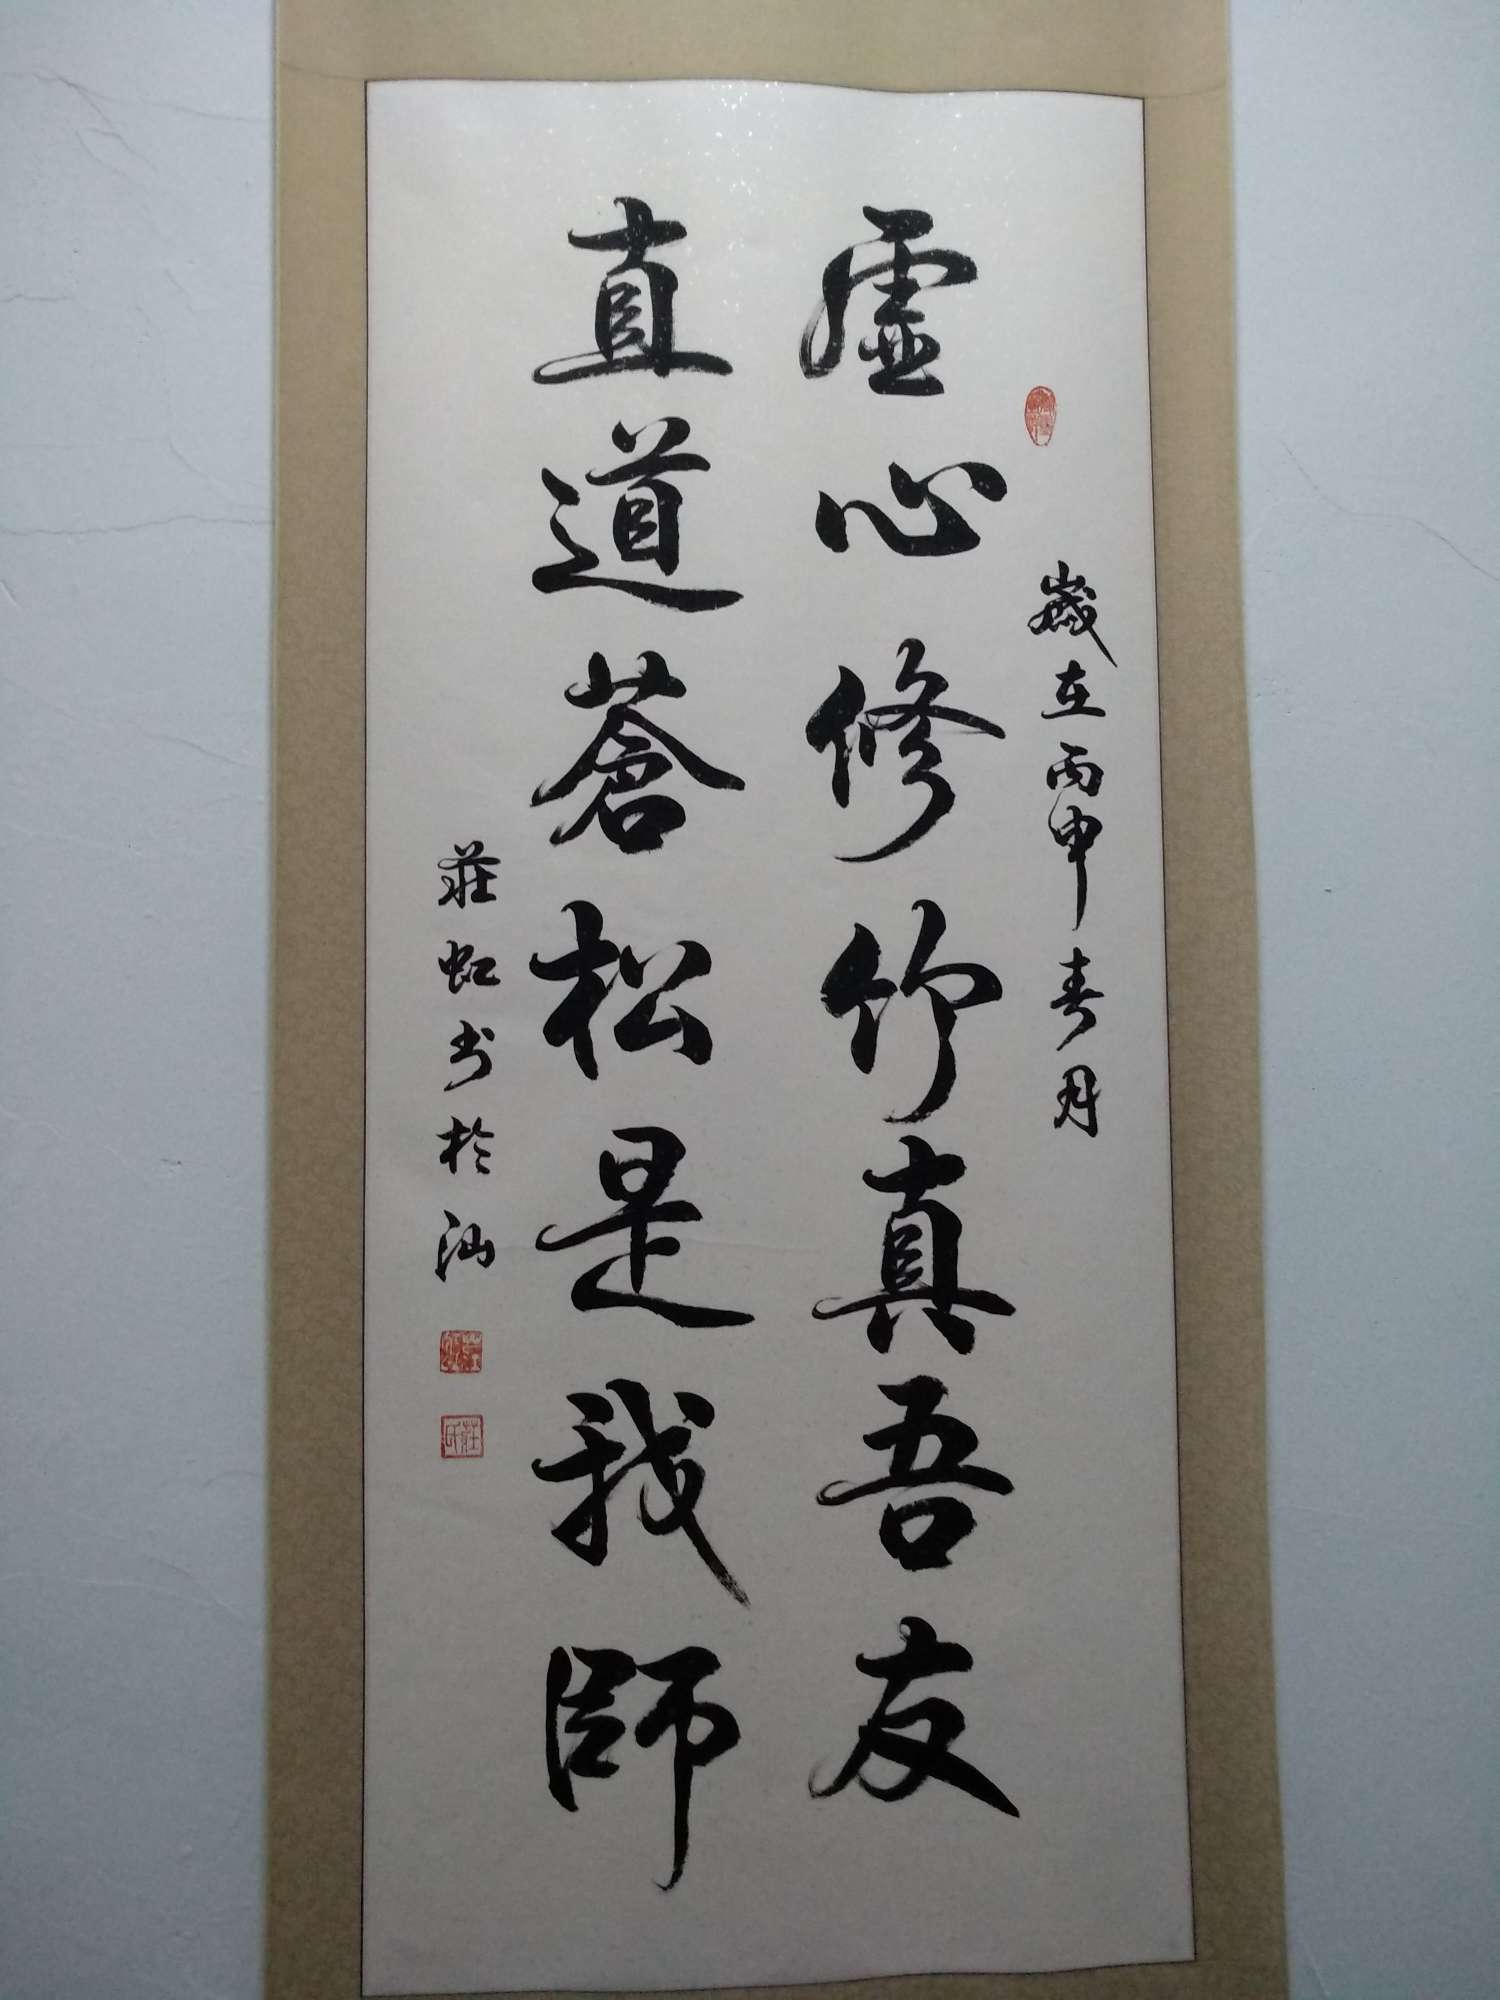 歲在丙申春月
虛心修竹真吾友
直道蒼松是我師
莊虹书於汕
莊氏